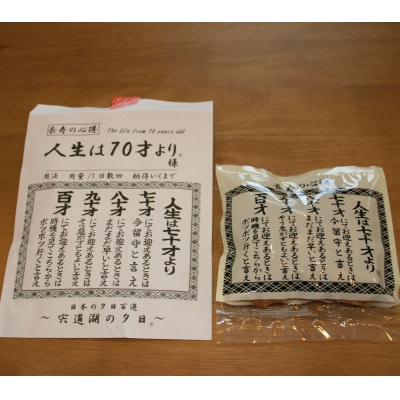 長寿の心得
the life from 70 years old
人生は70才より。
様
用法 用量/1日数回 納得いくまで
人生は七十才より
七十才
にてお迎えあるときは
今留守と言え
八十才
にてお迎えあるときは
まだまだ早いと言え
九十才
にてお迎えあるときは
そう急がずともよいと言え
百才
にてお迎えあるときは
時機を見てこちらから
ボツボツ行くと言え
日本の夕日百選
〜宍道湖の夕日〜
人生は七十才より
七十才
にてお迎えあるときは
今留守と言え
にてお迎えあるときは
まだまだ早いと言え
にてお迎えあるときは
そう急がずともよいと言え
百才
にてお迎えあるときは
時機を見てこちらから
ボツボツ行くと言え